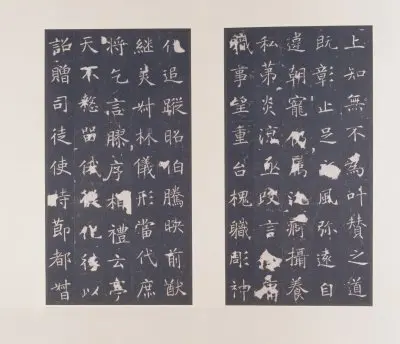 上知無不為叶贊之道
既彰止足風弥遠自
違朝寵屬痾攝養
私第炎涼亟改言
職事望重台槐職彫神
化追蹤昭伯騰映前猷
継美林儀形當代庶
將乞言膠序相禮云亭
天不憖留化往以
詔贈司徒使持節都督